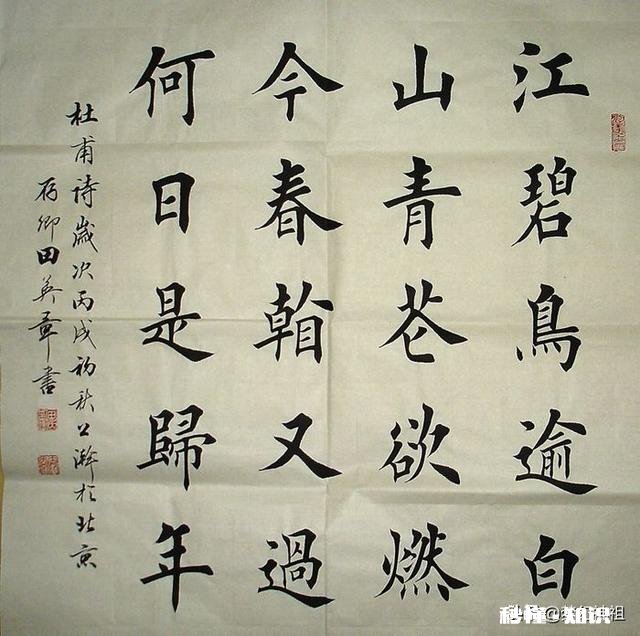 江碧鳥逾白
山青花欲燃
今春看又過
何日是歸年
杜甫詩歲次丙戌初秋於北京
存卿田英章書
秒懂·知识